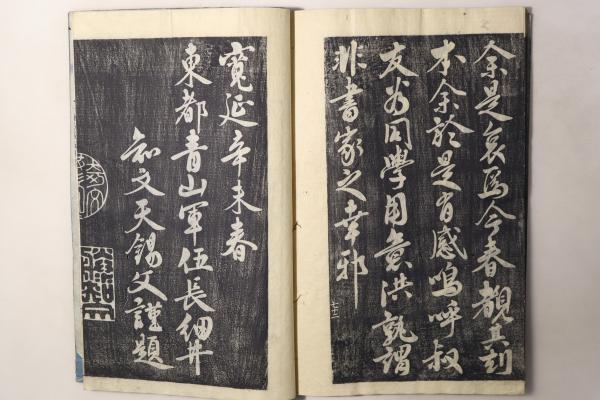 余是哀焉今春覩其刻
本余於是有感嗚呼叔
友當同學用意洪孰謂
非書家之幸邪
寛延辛未春
東都青山軍伍長細井
知文天錫父謹題